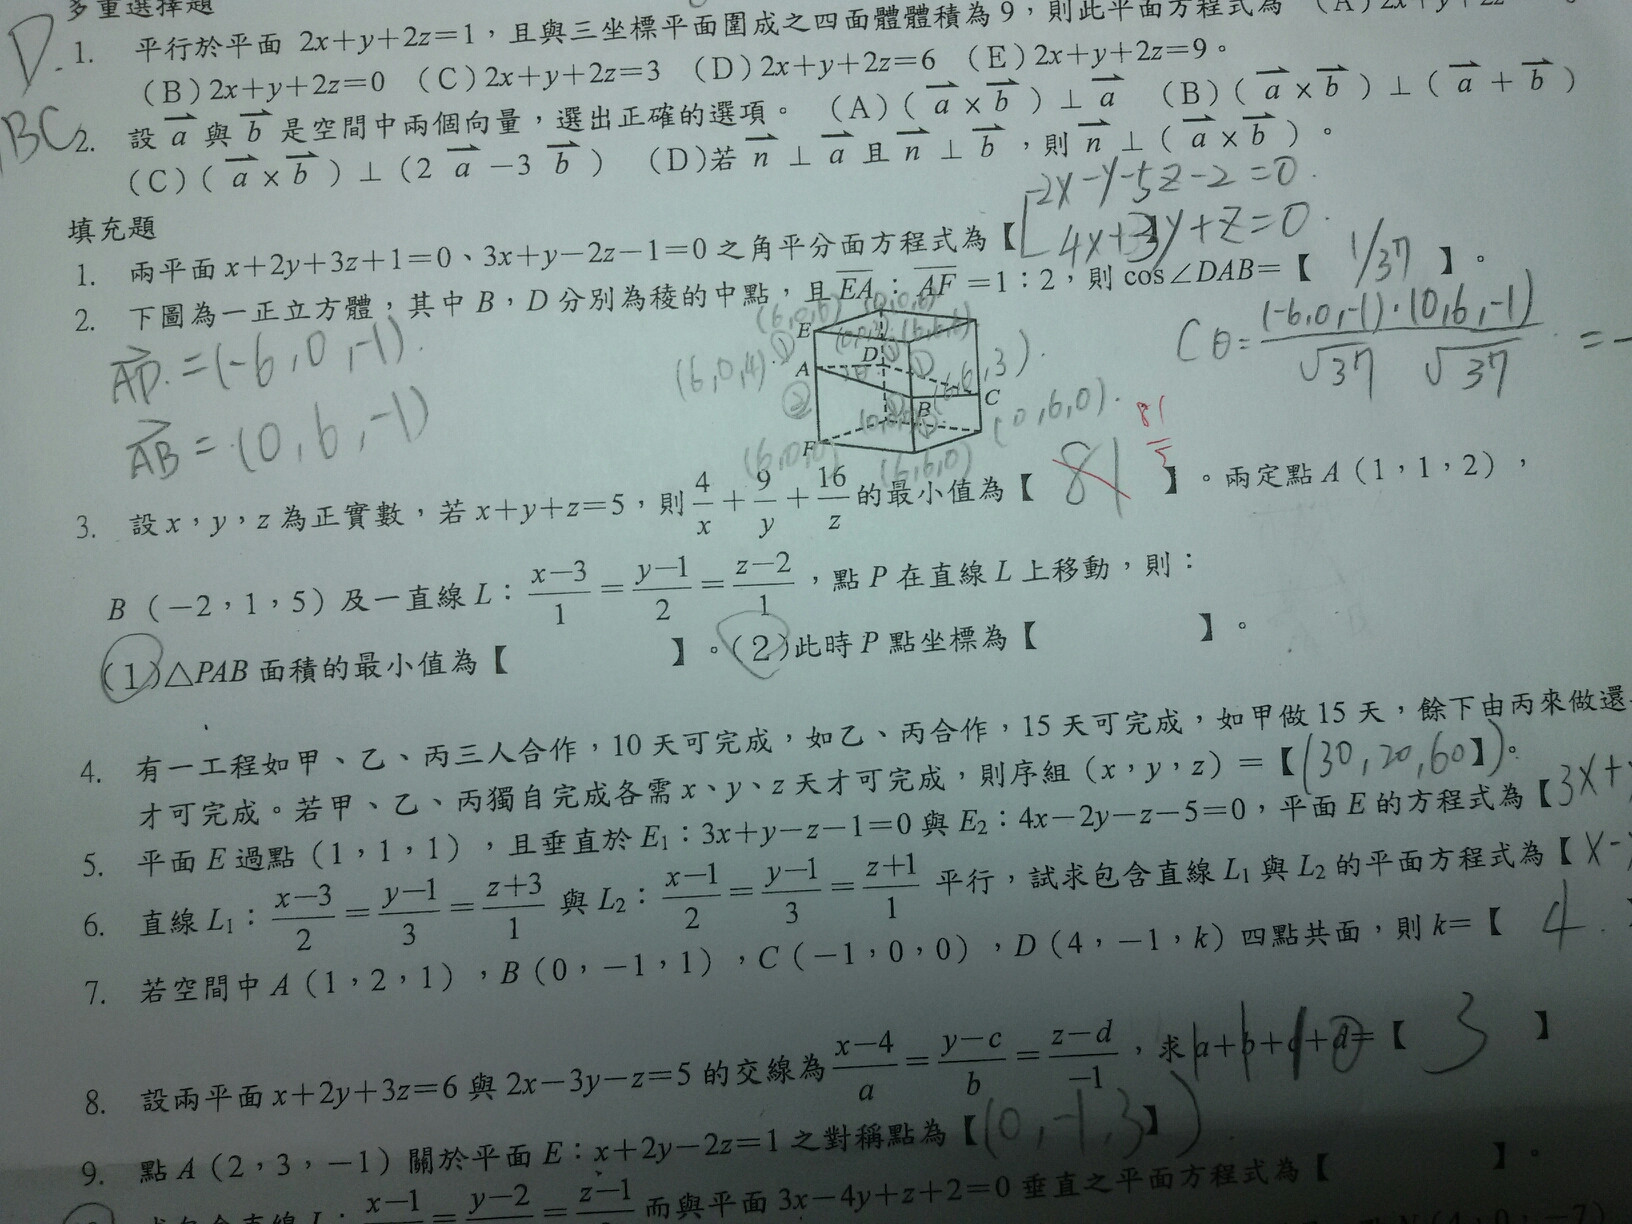 多重選擇題
D.
1. 平行於平面 2x+y+2z=1，且與三坐標平面圍成之四面體體積為9，則此平面方程式為 (A)2x+y+2z
(B)2x+y+2z=0 (C)2x+y+2z=3 (D)2x+y+2z=6 (E)2x+y+2z=9。
BC
2. 設 a 與 b 是空間中兩個向量，選出正確的選項。 (A)(a×b)⊥a (B)(a×b)⊥(a+b)
(C)(a×b)⊥(2a−3b) (D)若 n⊥a 且 n⊥b，則 n⊥(a×b)。
填充題
1. 兩平面 x+2y+3z+1=0、3x+y−2z−1=0 之角平分面方程式為【 】
-2x-y-5z-2=0.
4x+3y+z=0.
2. 下圖為一正立方體，其中 B，D 分別為稜的中點，且 EA：AF=1：2，則 cos∠DAB=【 1/37 】。
AD=(-6,0,-1).
AB=(0,6,-1)
Cθ= (-6,0,-1)·(0,6,-1) / √37 √37 = -
E D A B C F
(6,0,4) ① ②
(6,6,3).
(0,6,0).
(6,6,0)
3. 設 x，y，z 為正實數，若 x+y+z=5，則 4/x + 9/y + 16/z 的最小值為【 81 】。兩定點 A(1，1，2)，
81/5
B(−2，1，5)及一直線 L：(x−3)/1=(y−1)/2=(z−2)/1，點 P 在直線 L 上移動，則：
(1)△PAB 面積的最小值為【 】。(2)此時 P 點坐標為【 】。
4. 有一工程如甲、乙、丙三人合作，10 天可完成，如乙、丙合作，15 天可完成，如甲做 15 天，餘下由丙來做還
才可完成。若甲、乙、丙獨自完成各需 x、y、z 天才可完成，則序組(x，y，z)=【(30,20,60)】。
5. 平面 E 過點(1，1，1)，且垂直於 E1：3x+y−z−1=0 與 E2：4x−2y−z−5=0，平面 E 的方程式為【3x+y
6. 直線 L1：(x−3)/2=(y−1)/3=(z+3)/1 與 L2：(x−1)/2=(y−1)/3=(z+1)/1 平行，試求包含直線 L1 與 L2 的平面方程式為【x-
7. 若空間中 A(1，2，1)，B(0，−1，1)，C(−1，0，0)，D(4，−1，k)四點共面，則 k=【 4 .
8. 設兩平面 x+2y+3z=6 與 2x−3y−z=5 的交線為 (x−4)/a=(y−c)/b=(z−d)/−1，求 a+b+c+d=【 3 】
9. 點 A(2，3，−1)關於平面 E：x+2y−2z=1 之對稱點為【(0,-1,3)】
求包含直線 L：(x−1)/ =(y−2)/ =(z−1)/ 而與平面 3x−4y+z+2=0 垂直之平面方程式為【 】。